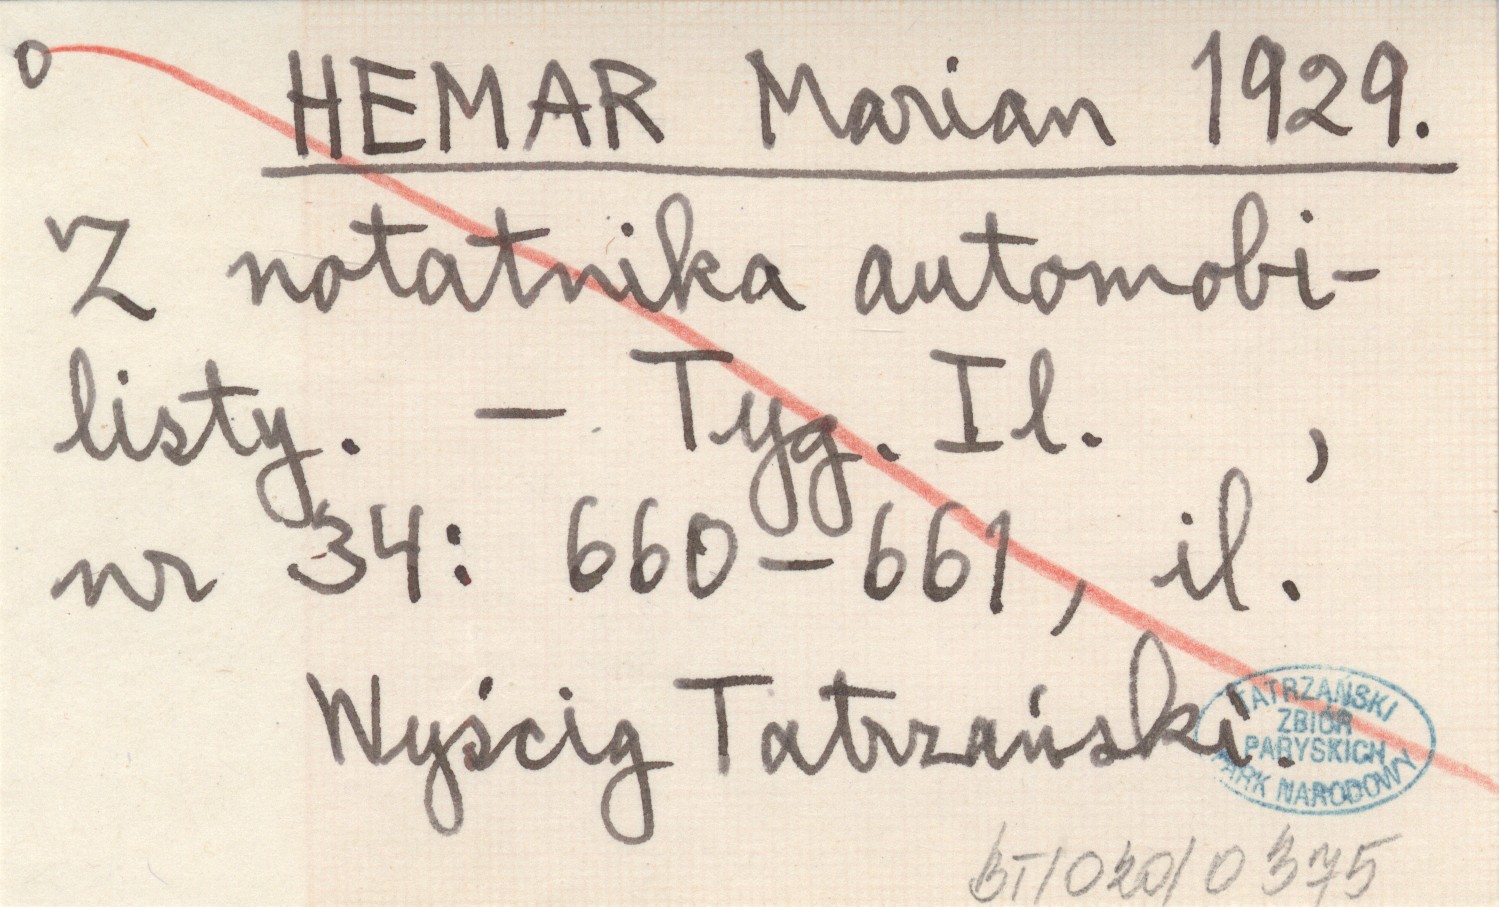 o HEMAR Marian 1929.
Z notatnika automobi-
listy. — Tyg. Il. ,
nr 34: 660-661, il.
Wyścig Tatrzański.
TATRZAŃSKI
ZBIÓR
PARYSKICH
PARK NARODOWY
BT/020/0375